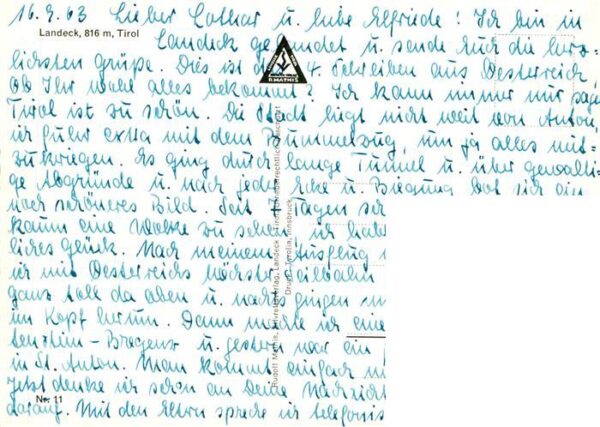 16.9.63 Lieber Lothar u. liebe Elfriede! Ich bin in
Landeck, 816 m, Tirol
Landeck gelandet u. sende Euch die herz-
lichsten Grüße. Dies ist das 4. Schreiben aus Oesterreich
ob Ihr wohl alles bekommt? Ich kann immer nur sagen
Tirol ist zu schön. Die Stadt liegt nicht weit von Anton,
ich fuhr extra mit dem Bummelzug, um ja alles mit-
zukriegen. Es ging durch lange Tunnel u. über gewalti-
ge Abgründe u. nach jeder Ecke u. Biegung bot sich ein
noch schöneres Bild. Seit 7 Tagen
kaum eine Wolke zu sehen
liches Glück. Nach meinem Ausflug
ich mit Oesterreichs höchster Seilbahn
ganz toll da oben u. nachts gingen
im Kopf herum. Dann machte ich eine
tenstein - Bregenz u. gestern war ein
in St. Anton. Man kommt einfach
Jetzt denke ich schon an Deine
darauf. Mit den Eltern spreche ich telefonis
Nr. 11
P. MATHIS
Rudolf Mathis, Landeck - Tirol
Druck: Tyrolia, Innsbruck